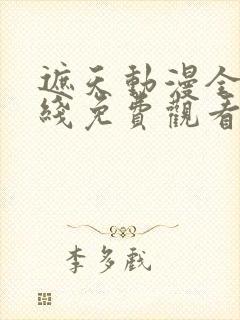 遮天動漫全
綫免費觀看
李多戲